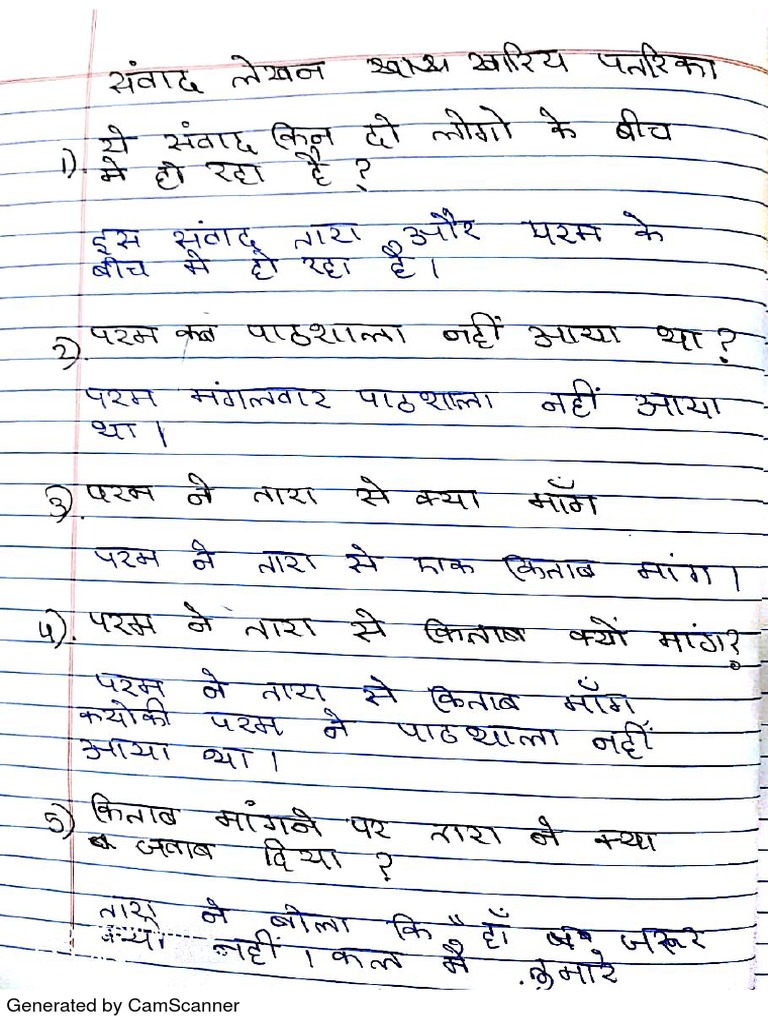 संवाद लेखन खारिय पतरिका
1). ये संवाद किन दो लोगो के बीच
मे हो रहा है ?
इस संवाद तारा और परम के
बीच मे हो रहा है ।
2). परम कब पाठशाला नहीं आया था ?
परम मंगलवार पाठशाला नहीं आया
था ।
3). परम ने तारा से क्या माँग
परम ने तारा से एक किताब मांग ।
4). परम ने तारा से किताब क्यों मांग ?
परम ने तारा से किताब माँग
क्योकी परम ने पाठशाला नहीं
आया था ।
5) किताब मांगने पर तारा ने क्या
जवाब दिया ?
तारा ने बोला कि हाँ जरूर
क्यो नहीं । कल मै
Generated by CamScanner